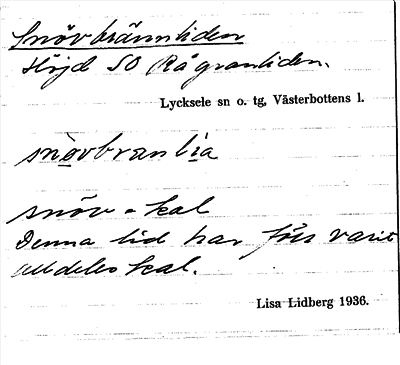 Snövbrännliden
Höjd SO Rågranliden.
Lycksele sn o. tg, Västerbottens l.
snövbranlia
snöv = kal
Denna lid har förr varit
alldeles kal.
Lisa Lidberg 1936.